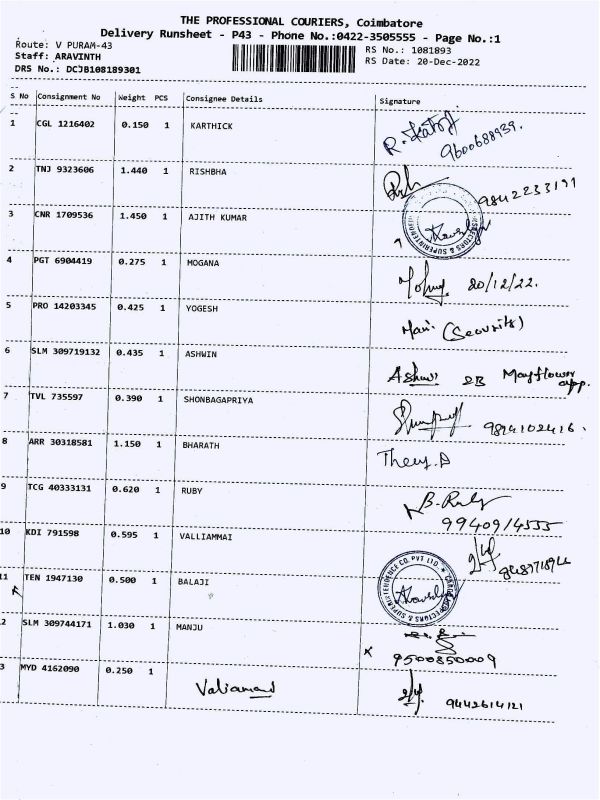 THE PROFESSIONAL COURIERS, Coimbatore
Delivery Runsheet - P43 - Phone No.:0422-3505555 - Page No.:1
Route: V PURAM-43 RS No.: 1081893
Staff: ARAVINTH RS Date: 20-Dec-2022
DRS No.: DCJB108189301
S No Consignment No Weight PCS Consignee Details Signature
1 CGL 1216402 0.150 1 KARTHICK
9600688939.
2 TNJ 9323606 1.440 1 RISHBHA
3 CNR 1709536 1.450 1 AJITH KUMAR
4 PGT 6904419 0.275 1 MOGANA 20/12/22.
5 PRO 14203345 0.425 1 YOGESH
Mani (Security)
6 SLM 309719132 0.435 1 ASHWIN
Ashwin 2B Mayflower app.
7 TVL 735597 0.390 1 SHONBAGAPRIYA
9894102416.
8 ARR 30318581 1.150 1 BHARATH
9 TCG 40333131 0.620 1 RUBY B. Ruby
9940914555
10 KDI 791598 0.595 1 VALLIAMMAI
11 TEN 1947130 0.500 1 BALAJI
2 SLM 309744171 1.030 1 MANJU
9500850009
3 MYD 4162090 0.250 1
Valiamand 9442614121